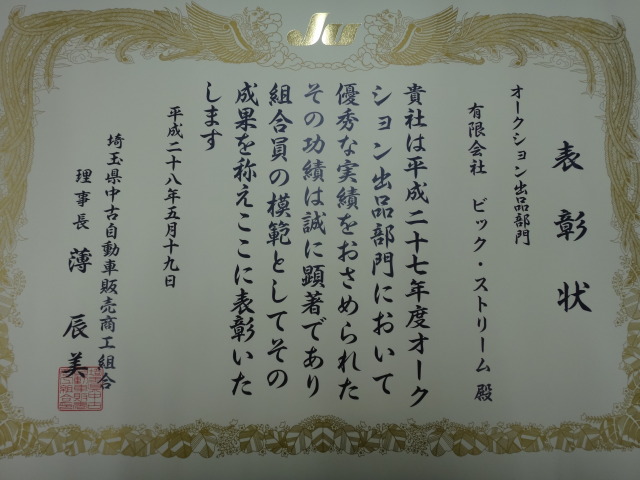 JU
表彰状
オークション出品部門
有限会社 ビック・ストリーム 殿
貴社は平成二十七年度オーク
ション出品部門において
優秀な実績をおさめられた
その功績は誠に顕著であり
組合員の模範としてその
成果を称えここに表彰いた
します
平成二十八年五月十九日
埼玉県中古自動車販売商工組合
理事長 薄 辰美